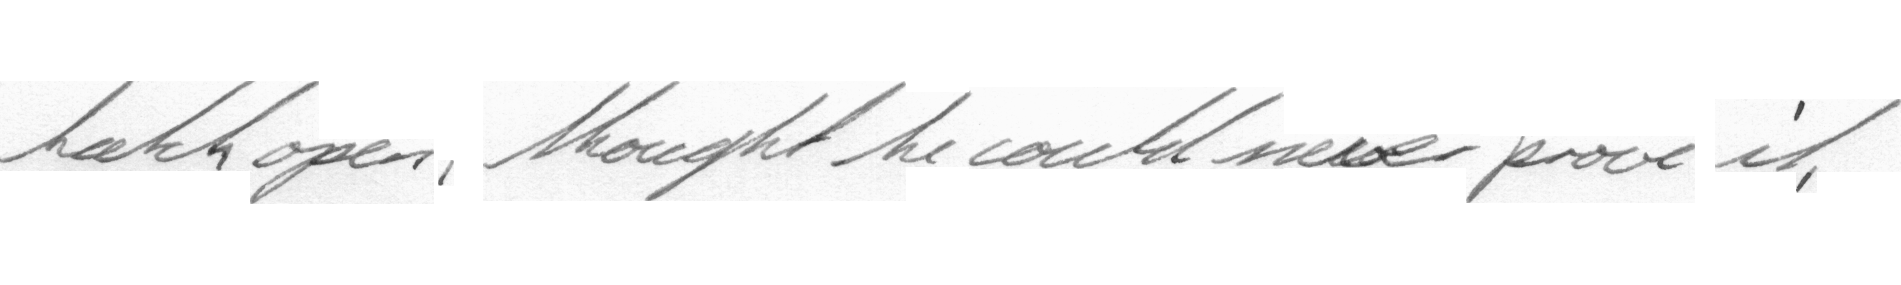 hatch open, thought he could never prove it,